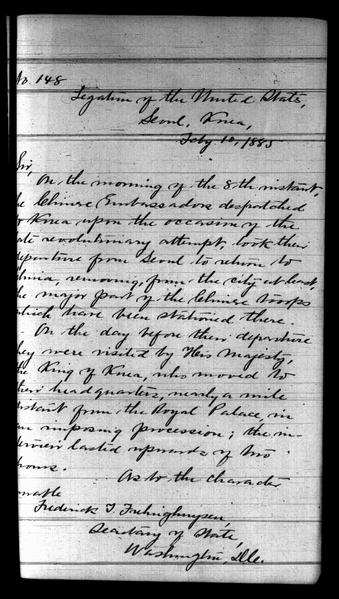 No. 148
Legation of the United States,
Seoul, Korea,
Feby 10, 1885
Sir,
On the morning of the 8th instant,
he Chinese Embassadors despatched
o Korea upon the occasion of the
ate revolutionary attempt, took their
eparture from Seoul to return to
hina, removing from the city at least,
he major part of the Chinese troops
which have been stationed there.
On the day before their departure
hey were visited by His Majesty,
he King of Korea, who moved to
their headquarters, nearly a mile
istant from the Royal Palace, in
an imposing procession; the in-
terview lasted upwards of two
hours.
As to the character
orable
Frederick T. Frelinghuysen,
Secretary of State,
Washington, D.C.